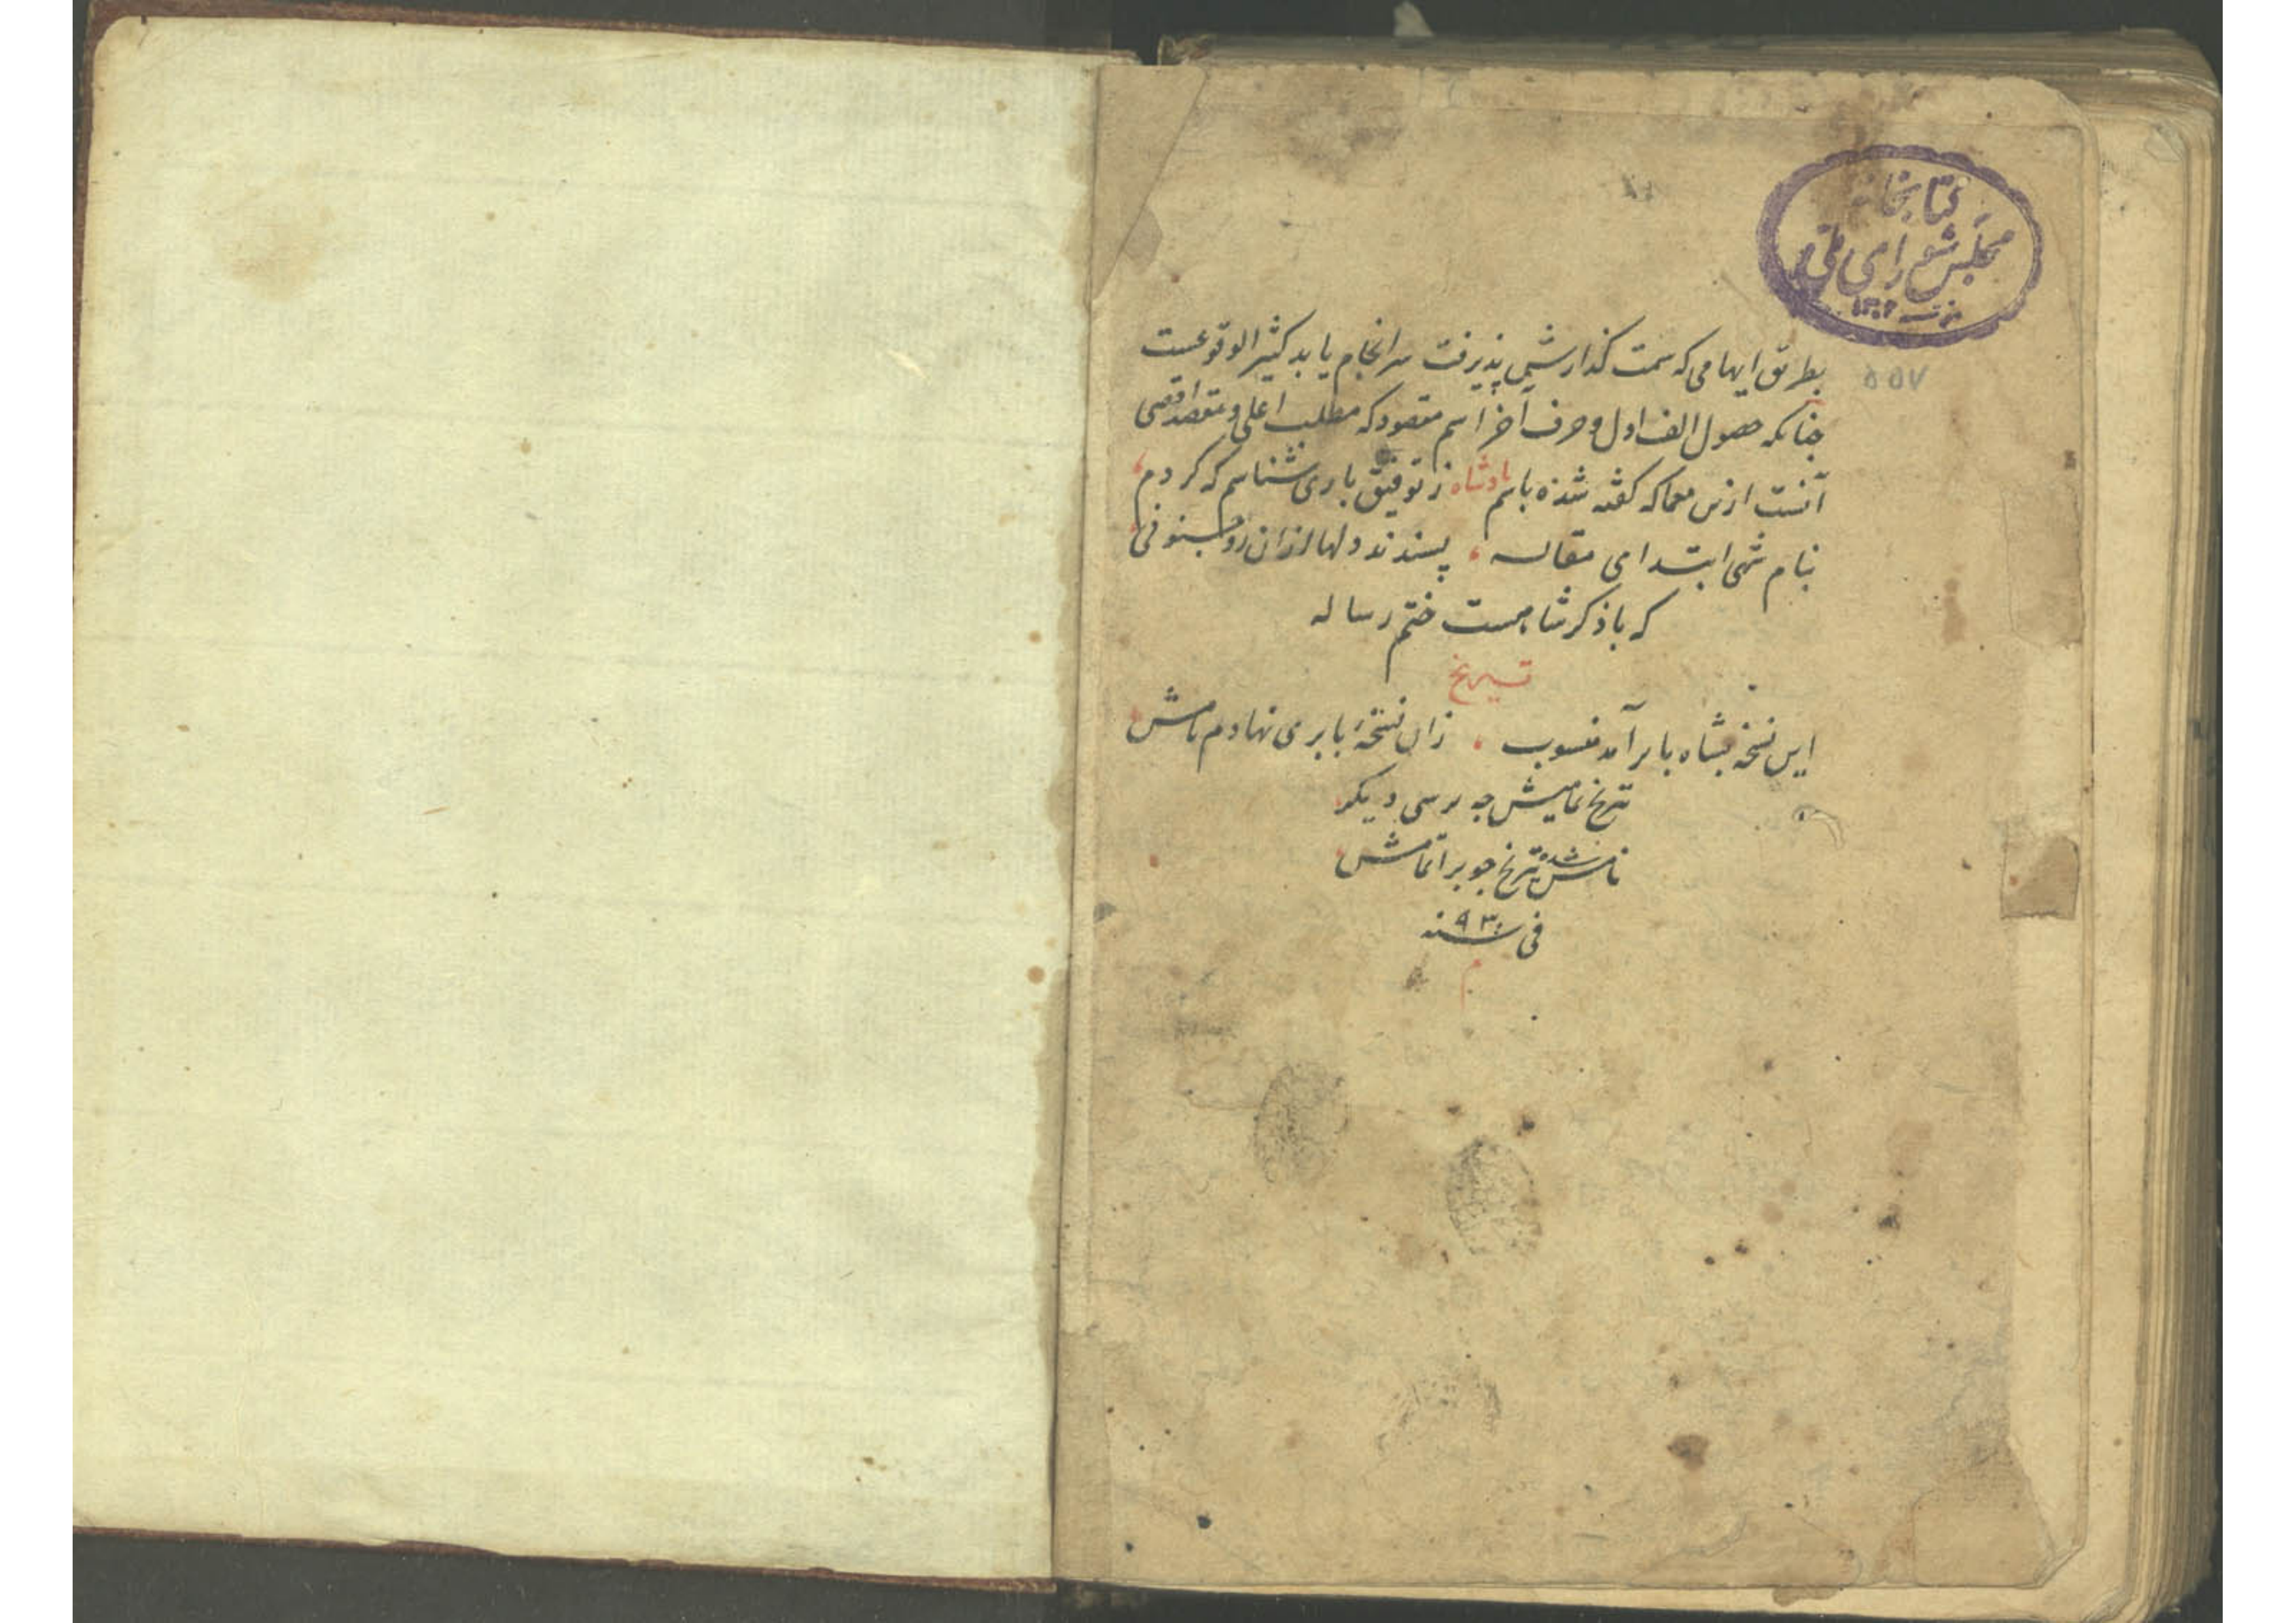 کتابخانه
مجلس شورای ملی
۵۵۷
بطریق ایهامی که سمت گذارش پذیرفت سرانجام یابد کثیر الوقوعست
چنانکه حصول الف اول و حرف آخر اسم مقصود که مطلب اعلی و مقصد اقصی
آنست ازین معما که گفته شده باسم پادشاه ز توفیق باری شناسم که کردم
بنام شهی ابتدای مقاله ، پسندند دلها ازان رو
که با ذکر شاهست ختم رساله
تاریخ
این نسخه بشاه بابر آمد منسوب ، زان نسخهٔ بابری نهادم نامش
تاریخ تمامیش چه پرسی دیگر
نامش شده تاریخ چو بر اتمامش
فی سنه ۹۳۰
م